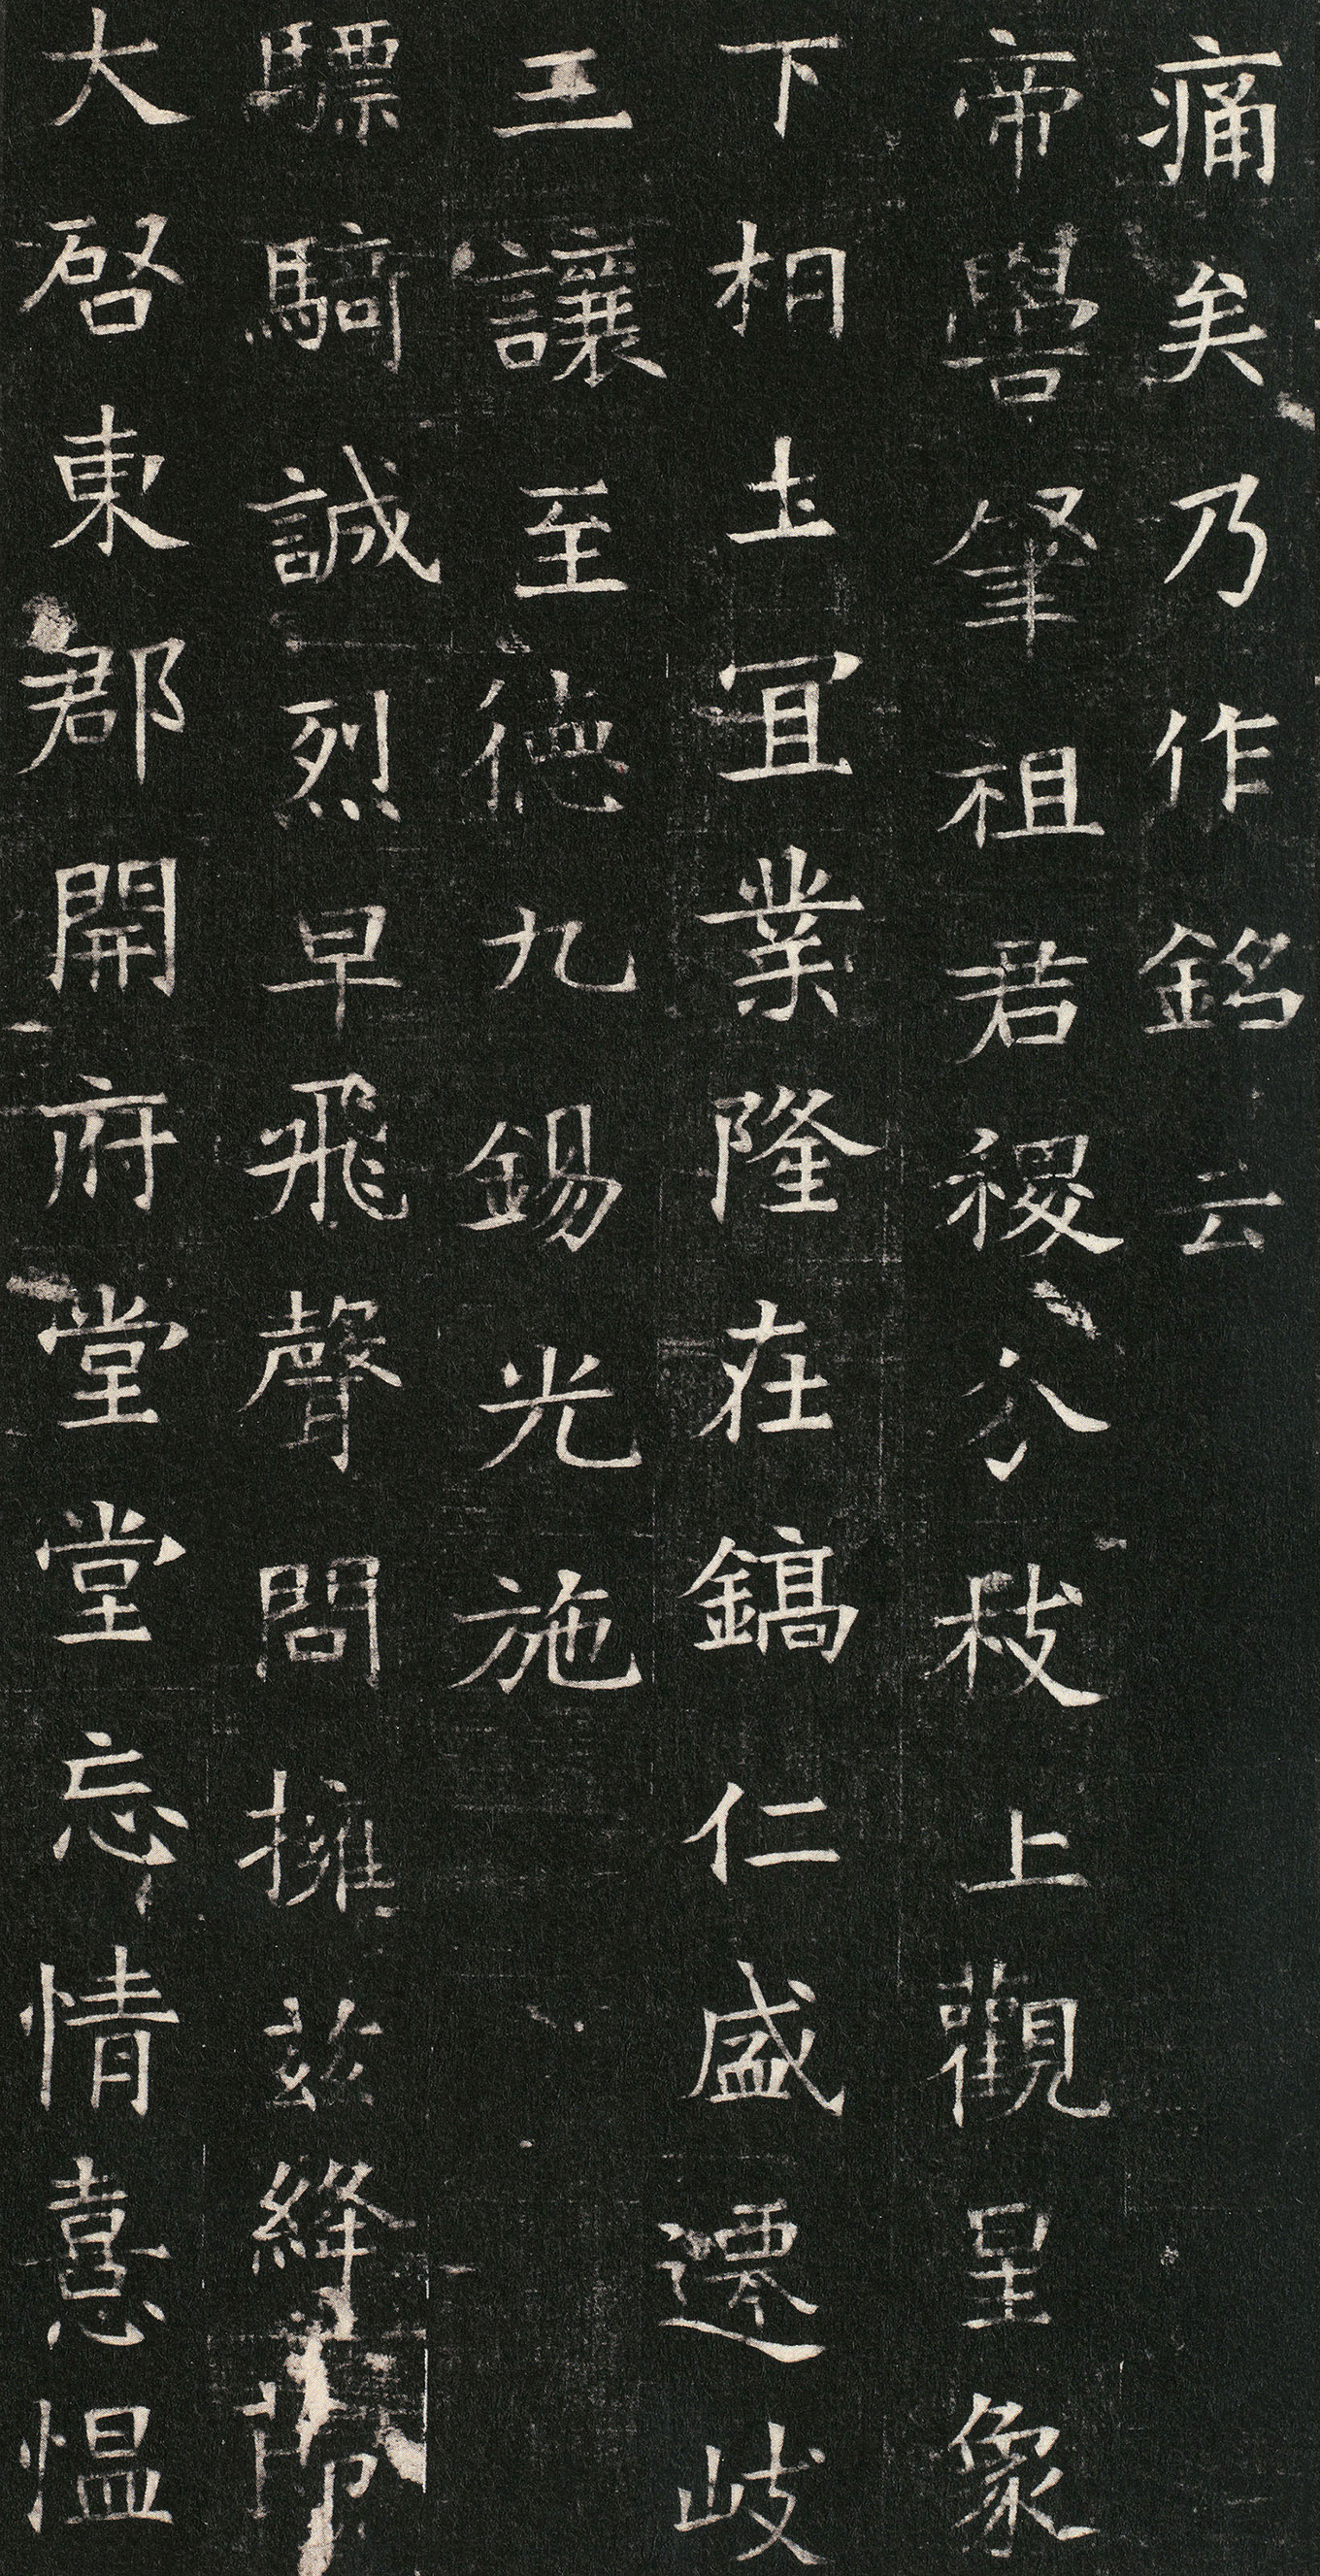 痛矣乃作銘云
帝嚳肇祖君稷分枝上觀星象
下相土宜業隆在鎬仁盛遷岐
三讓至德九錫光施
驃騎誠烈早飛聲問擁茲絳節
大啓東郡開府堂堂忘情憙愠